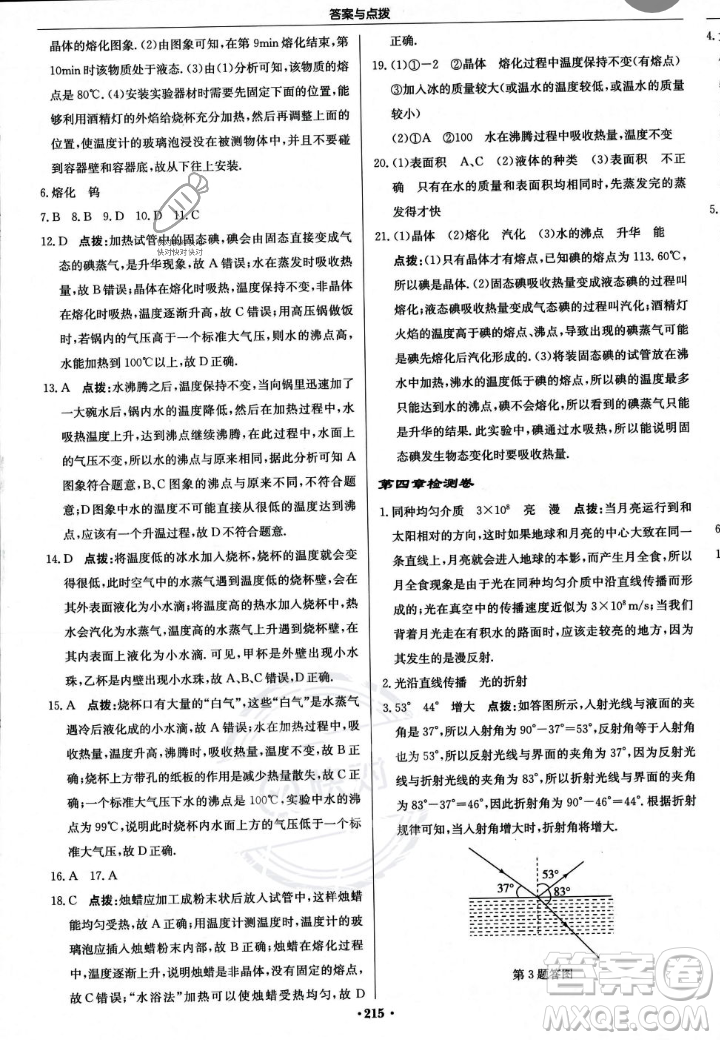 答案与点拨
晶体的熔化图象. (2)由图象可知,在第 9min 熔化结束,第
10min 时该物质处于液态. (3)由分析可知,该物质的熔
点是 80℃. (4)安装实验器材时需先固定下面的位置,能
够利用酒精灯的外焰给烧杯充分加热,并固定好上面的
位置,使温度计的玻璃泡浸没在被测物体中,并且没有接
触到容器壁和容器底,故从下往上安装.
6. 熔化 钨
7. B 8. B 9. D 10. D 11. C
12. D 点拨:加热试管中的固态碘,碘会由固态直接变成气
快对快对快对
态的碘蒸气,是升华现象,故 A 错误;水在蒸发时吸收热
量,故 B 错误;晶体在熔化时吸热,温度保持不变,非晶
体在熔化时吸热,温度逐渐升高,故 C 错误;用高压锅做饭
时,若锅内的气压高于一个标准大气压,则水的沸点高,
水能加热到 100℃以上,故 D 正确.
13. A 点拨:水沸腾之后,温度保持不变,当向锅里迅速加了
一大碗水后,锅内水的温度降低,然后在加热过程中,水
吸热温度上升,达到沸点继续沸腾,在同一地方,水面上
的气压不变,所以水的沸点相同,故据此分析可知 A
图象符合题意,B、C 图象不符合题意;D 图象不符合题
意,因为刚加入水时,水的温度会下降,然后继续加热至
沸点,应该有一个升温过程,故 D 错误.
14. D 点拨:将温度低的冰水加入烧杯,烧杯的温度就会变
得很低,此时空气中的水蒸气遇到温度低的烧杯壁,会在
其外表面液化为小水滴;将温度高的热水加入烧杯,会产
生高温水蒸气,温度高的水蒸气上升时遇到温度低的烧
杯内壁,会液化成小水滴. 可见,甲杯是外壁出现小水
珠,乙杯是内壁出现水珠. 故 A、B、C 错误;D 正确.
15. A 点拨:烧杯口有大量的“白气”,这些“白气”是水蒸气
遇冷后液化成的小水滴,故 A 正确;水在沸腾过程中,
吸收热量,温度不变,沸腾前,吸收热量,温度升高,故 B
错误;烧杯上方带孔的纸板的作用是减小热量散失,故 C
错误;一个标准大气压下水的沸点是 100℃,实验中水的沸
点为 99℃,说明此时烧杯内水面上方的气压小于一个标准
大气压,故 D 错误.
16. A 17. A
18. C 点拨:烛蜡应加工成粉末状后放入试管中,这样烛蜡
能均匀受热,故 A 正确;用温度计测温度时,温度计的玻
璃泡应插入烛蜡粉末内部,故 B 正确;烛蜡在熔化过程
中,温度逐渐升高,说明烛蜡是非晶体,没有固定的熔点,
故 C 错误;“水浴法”加热可以使烛蜡受热均匀,故 D
正确.
19. (1)①-2 ②晶体 熔化过程中温度保持不变(有熔点)
③加入冰的质量较大(或温水的温度较低、温水的质量
较小)
(2)①A ②100 水在沸腾过程中吸收热量,温度不变
20. (1)表面积 A、C (2)液体的种类 (3)表面积 不正
确 只有在水的质量和温度相同时,先蒸发完的蒸
发得才快
21. (1)晶体 (2)熔化 汽化 (3)水的沸点 升华 能
点拨:(1)只有晶体才有熔点,已知碘的熔点为 113.60℃,
所以碘是晶体. (2)固态碘吸收热量变成液态碘的过程叫
熔化;液态碘吸收热量变成气态碘的过程叫汽化;酒精灯
火焰的温度高于碘的熔点、沸点,所以这一过程中可能是
碘先熔化后汽化形成的. (3)将装有固态碘的试管放在沸
水中加热,观察到试管中有碘蒸气产生,由于碘的熔点高
于水的沸点,碘不会熔化,所以看到的碘蒸气只能
是升华的结果. 此实验中,碘不断吸收热量,所以
碘发生物态变化时要吸收热量.
第四章检测卷
1. 同种均匀介质 3×10⁸ 亮 漫 点拨:当月亮转到和
太阳相对的方向,这时如果地球和月亮的中心大致在同
一条直线上,月亮就会进入地球的本影,而产生月全食,月
全食现象是由于光在同种均匀介质中沿直线传播而形
成的;光在真空中的传播速度近似为 3×10⁸m/s;当我们
背着月光走在有积水的路面时,应踩亮处,因为亮的是水面,
其发生的是漫反射.
2. 光沿直线传播 光的折射
3. 53° 44° 增大 点拨:如答图所示,入射光线与液面的夹
角是 37°,所以入射角为 90°-37°=53°,所以反射角
也为 53°,所以反射光线与界面的夹角为 37°,折射光线与
界面的夹角为 83°-37°=46°,所以折射角为 90°-46°=
44°,所以折射角小于入射角(44°<53°). 根据光的折射
规律可知,当入射角增大时,折射角将增大.
37° 53° 83°
第 3 题答图
答案卷
MXEQE.COM
· 215 ·